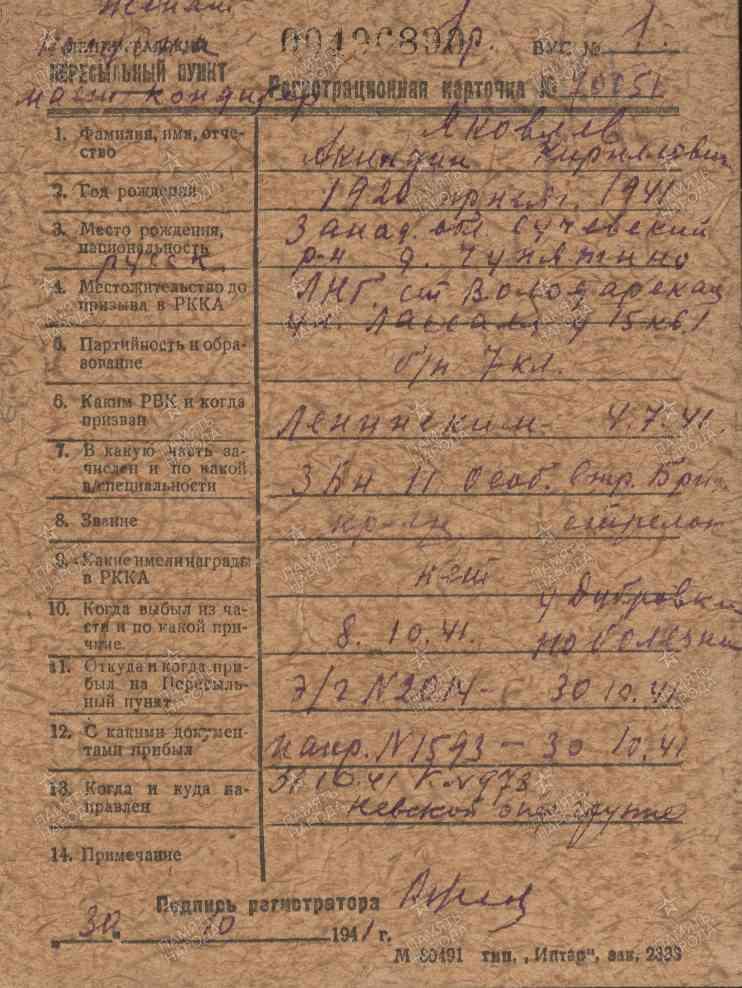 женат
ЛЕНИНГРАДСКИЙ
004968900
ВУС № 1.
ПЕРЕСЫЛЬНЫЙ ПУНКТ
Регистрационная карточка №
маст кондитер
1. Фамилия, имя, отче-
ство
Яковлев
Акиндин Кириллович
2. Год рождения
1920 1941
3. Место рождения,
национальность
русск.
Запад. обл. Сычевский
р-н д.
4. Местожительство до
призыва в РККА
ЛНГ. ст Володарская
ул. Лассаля д 15 кв. 1
5. Партийность и обра-
зование
б/п 7 кл.
6. Каким РВК и когда
призван
Ленинским 4.7.41.
7. В какую часть за-
числен и по какой
в/специальности
3 Бн 11 Особ. Стр. Бри.
8. Звание
кр-ец стрелок
9. Какие имел награды
в РККА
нет
10. Когда выбыл из ча-
сти и по какой при-
чине.
у Дубровки
8. 10. 41. по болезни
11. Откуда и когда при-
был на Пересыль-
ный пункт
э/г N 2014 - 30 10. 41
12. С какими докумен-
тами прибыл
напр. N 1593 - 30 10. 41
13. Когда и куда на-
правлен
31 10. 41 К. N 973
Невской опер группе
14. Примечание
Подпись регистратора
„ 30 “ 10 1941 г.
М 80491 тип. „Интар“, зак. 2338
ПАМЯТЬ НАРОДА